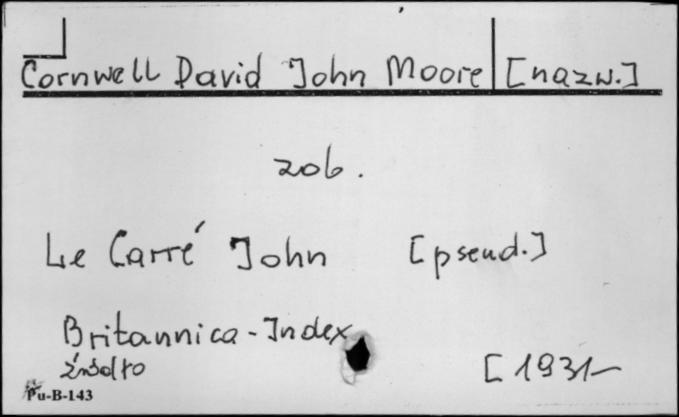 Cornwell David John Moore [nazw.]
zob.
Le Carré John [pseud.]
Britannica-Index
źródło [1931-
Pu-B-143